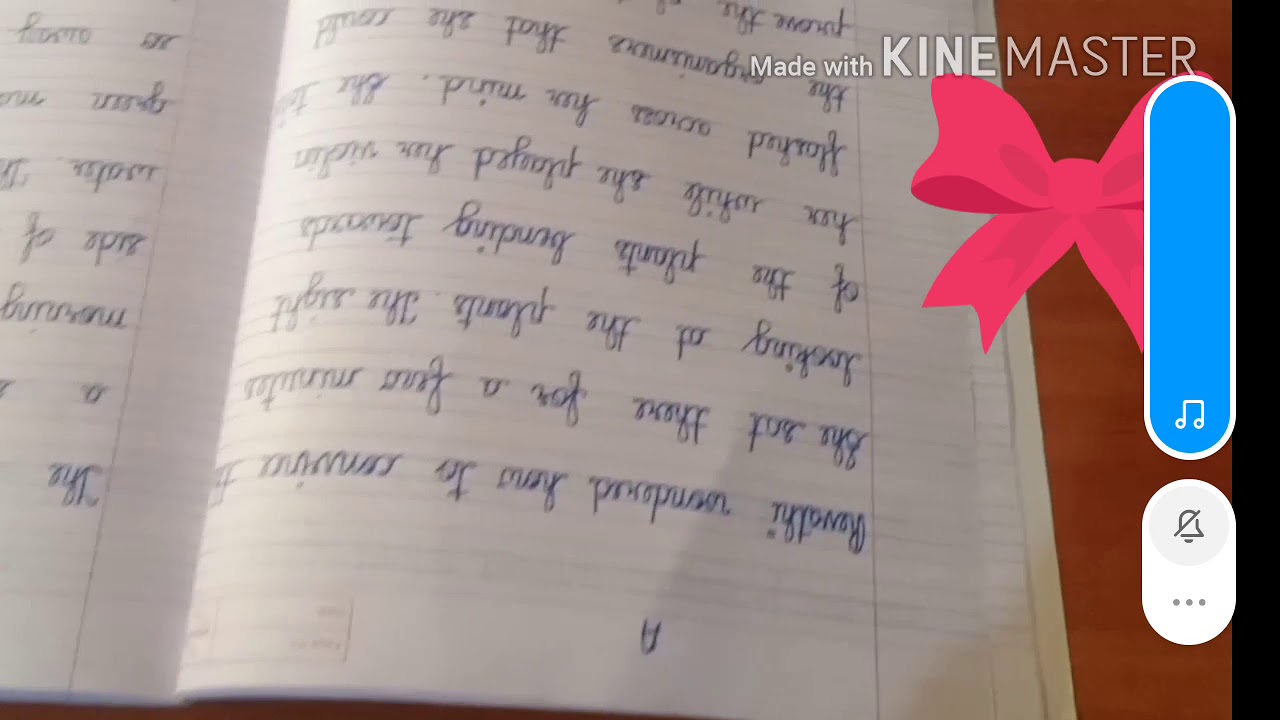 Made with KINEMASTER
A
Revathi wondered how to convince
She sat there for a few minutes
looking at the plants. The sight
of the plants bending towards
her while she played her violin
flashed across her mind. She
the organisers that she could
prove the
The
a
morning
side of
water.
green
so away